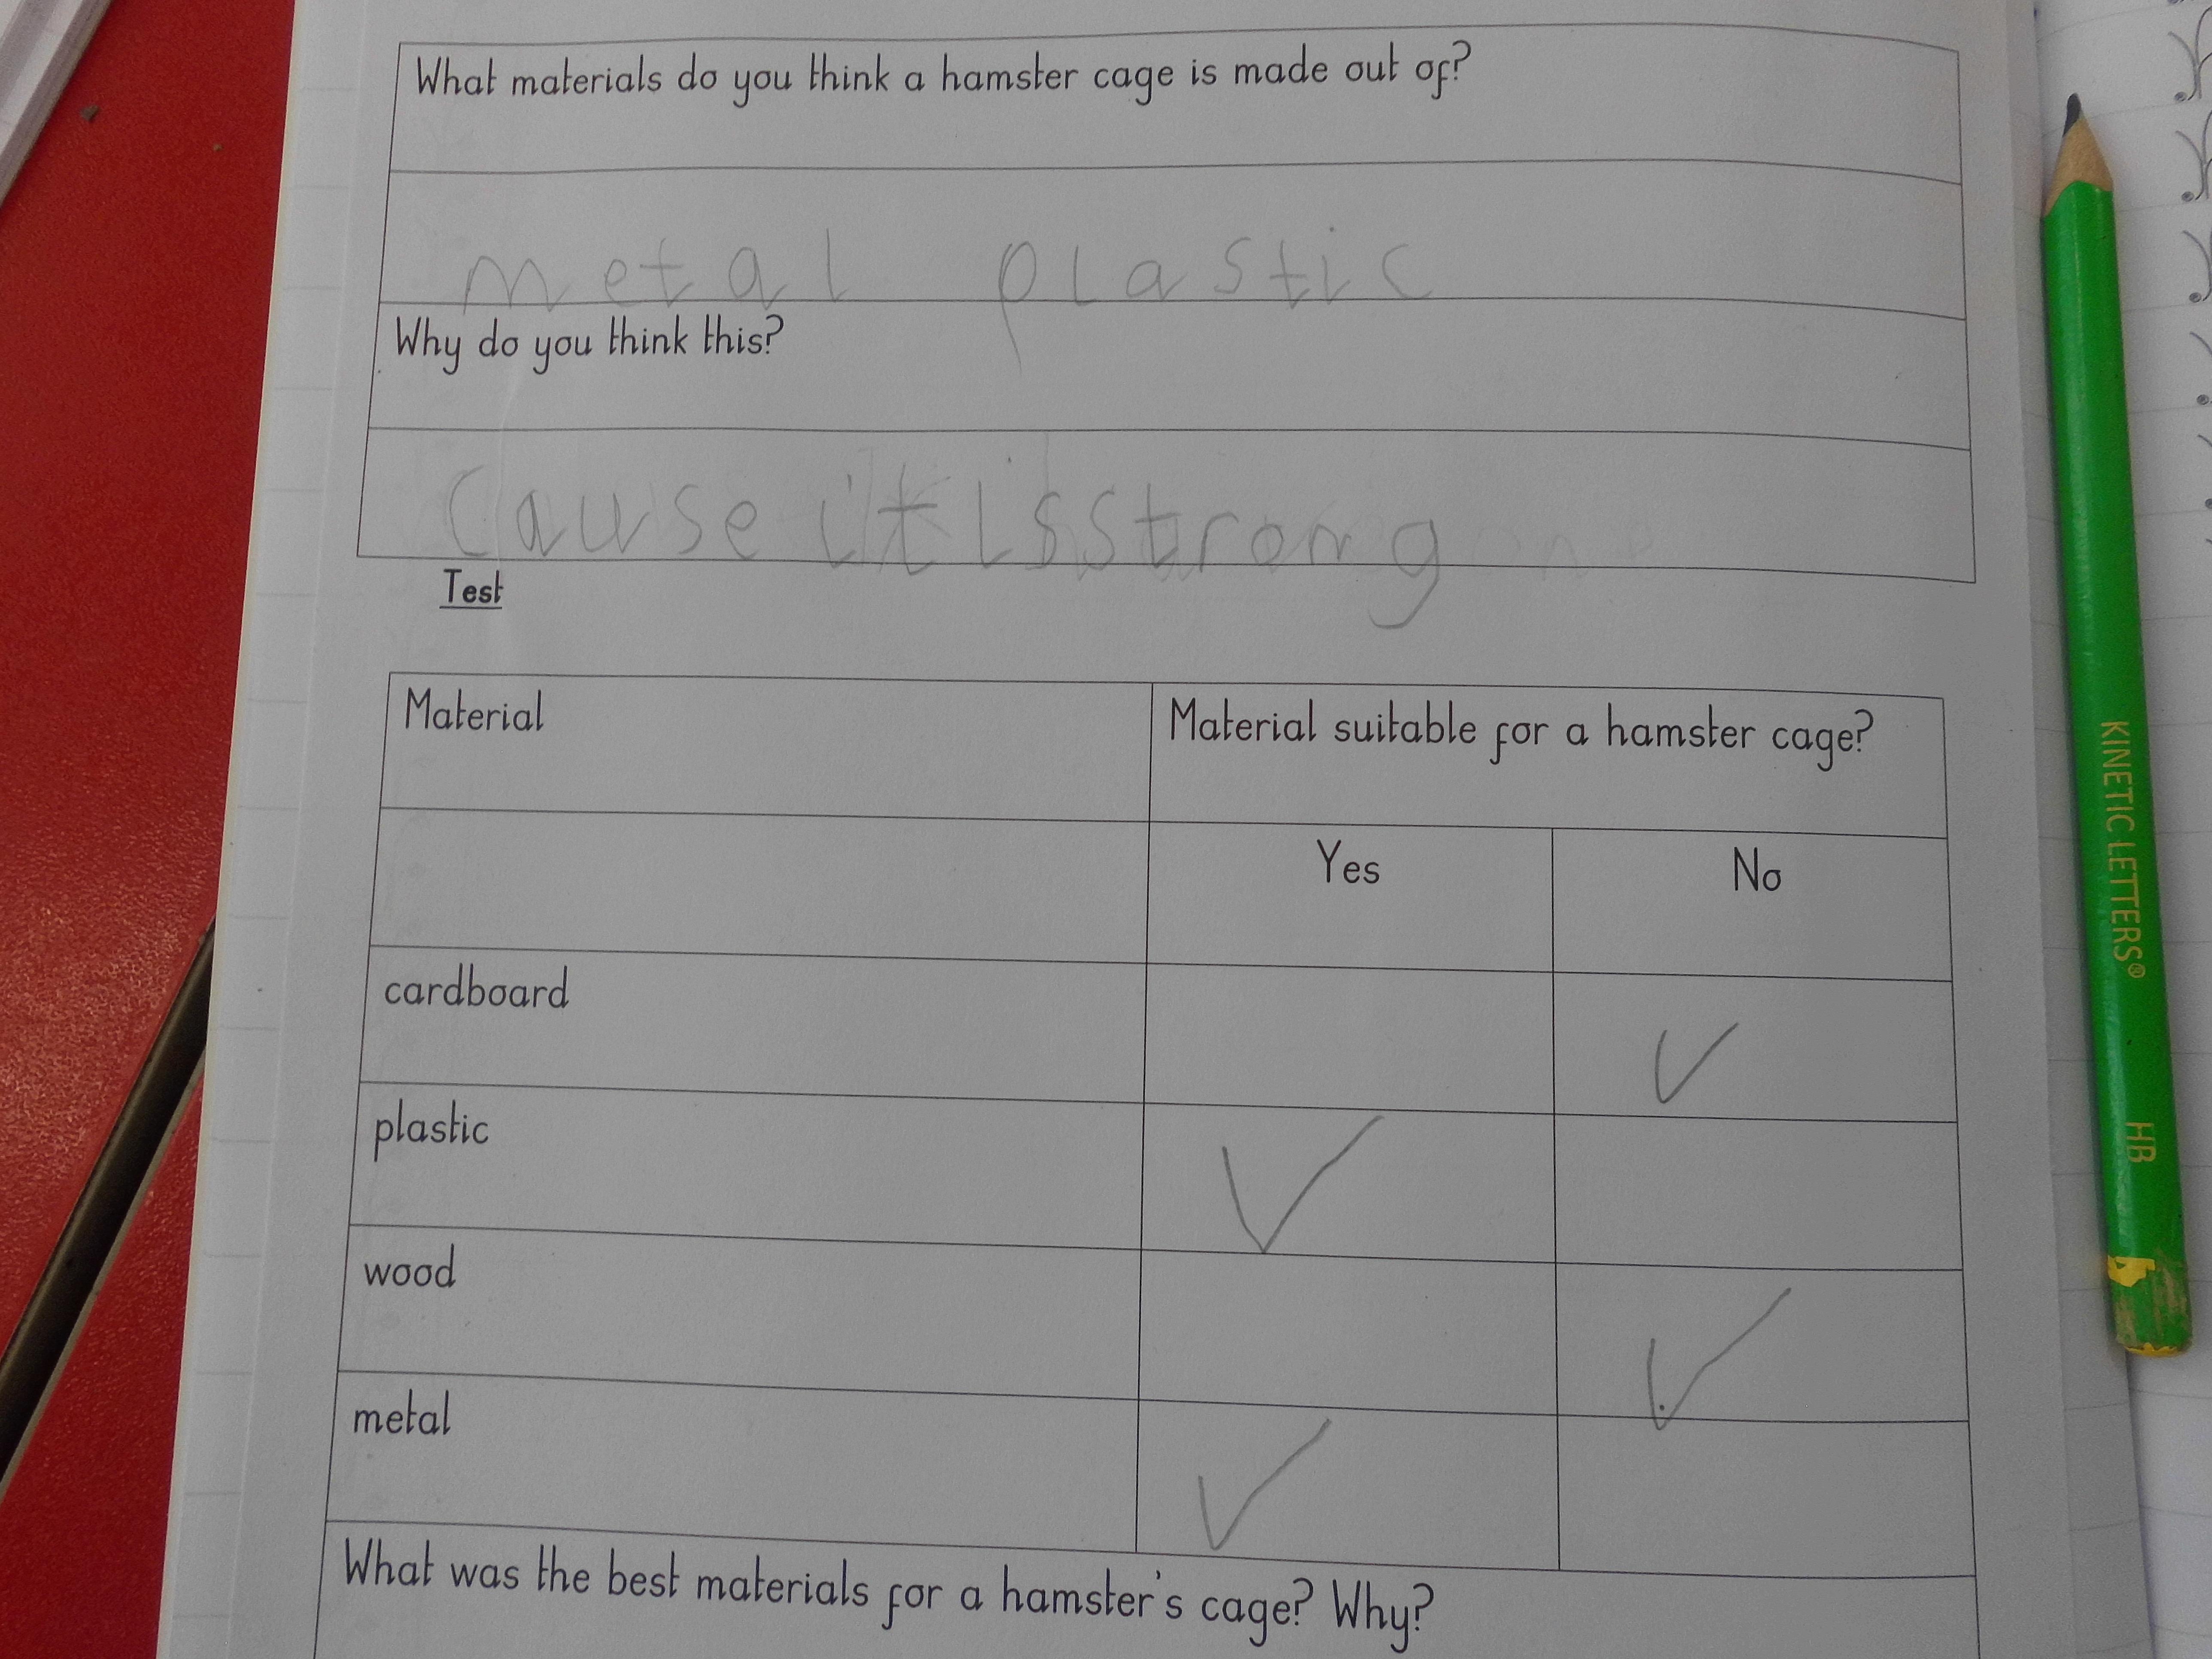 What materials do you think a hamster cage is made out of?
metal plastic
Why do you think this?
Cause it is strong
Test
Material
Material suitable for a hamster cage?
Yes
No
cardboard
✓
plastic
✓
wood
✓
metal
✓
What was the best materials for a hamster's cage? Why?
KINETIC LETTERS® HB